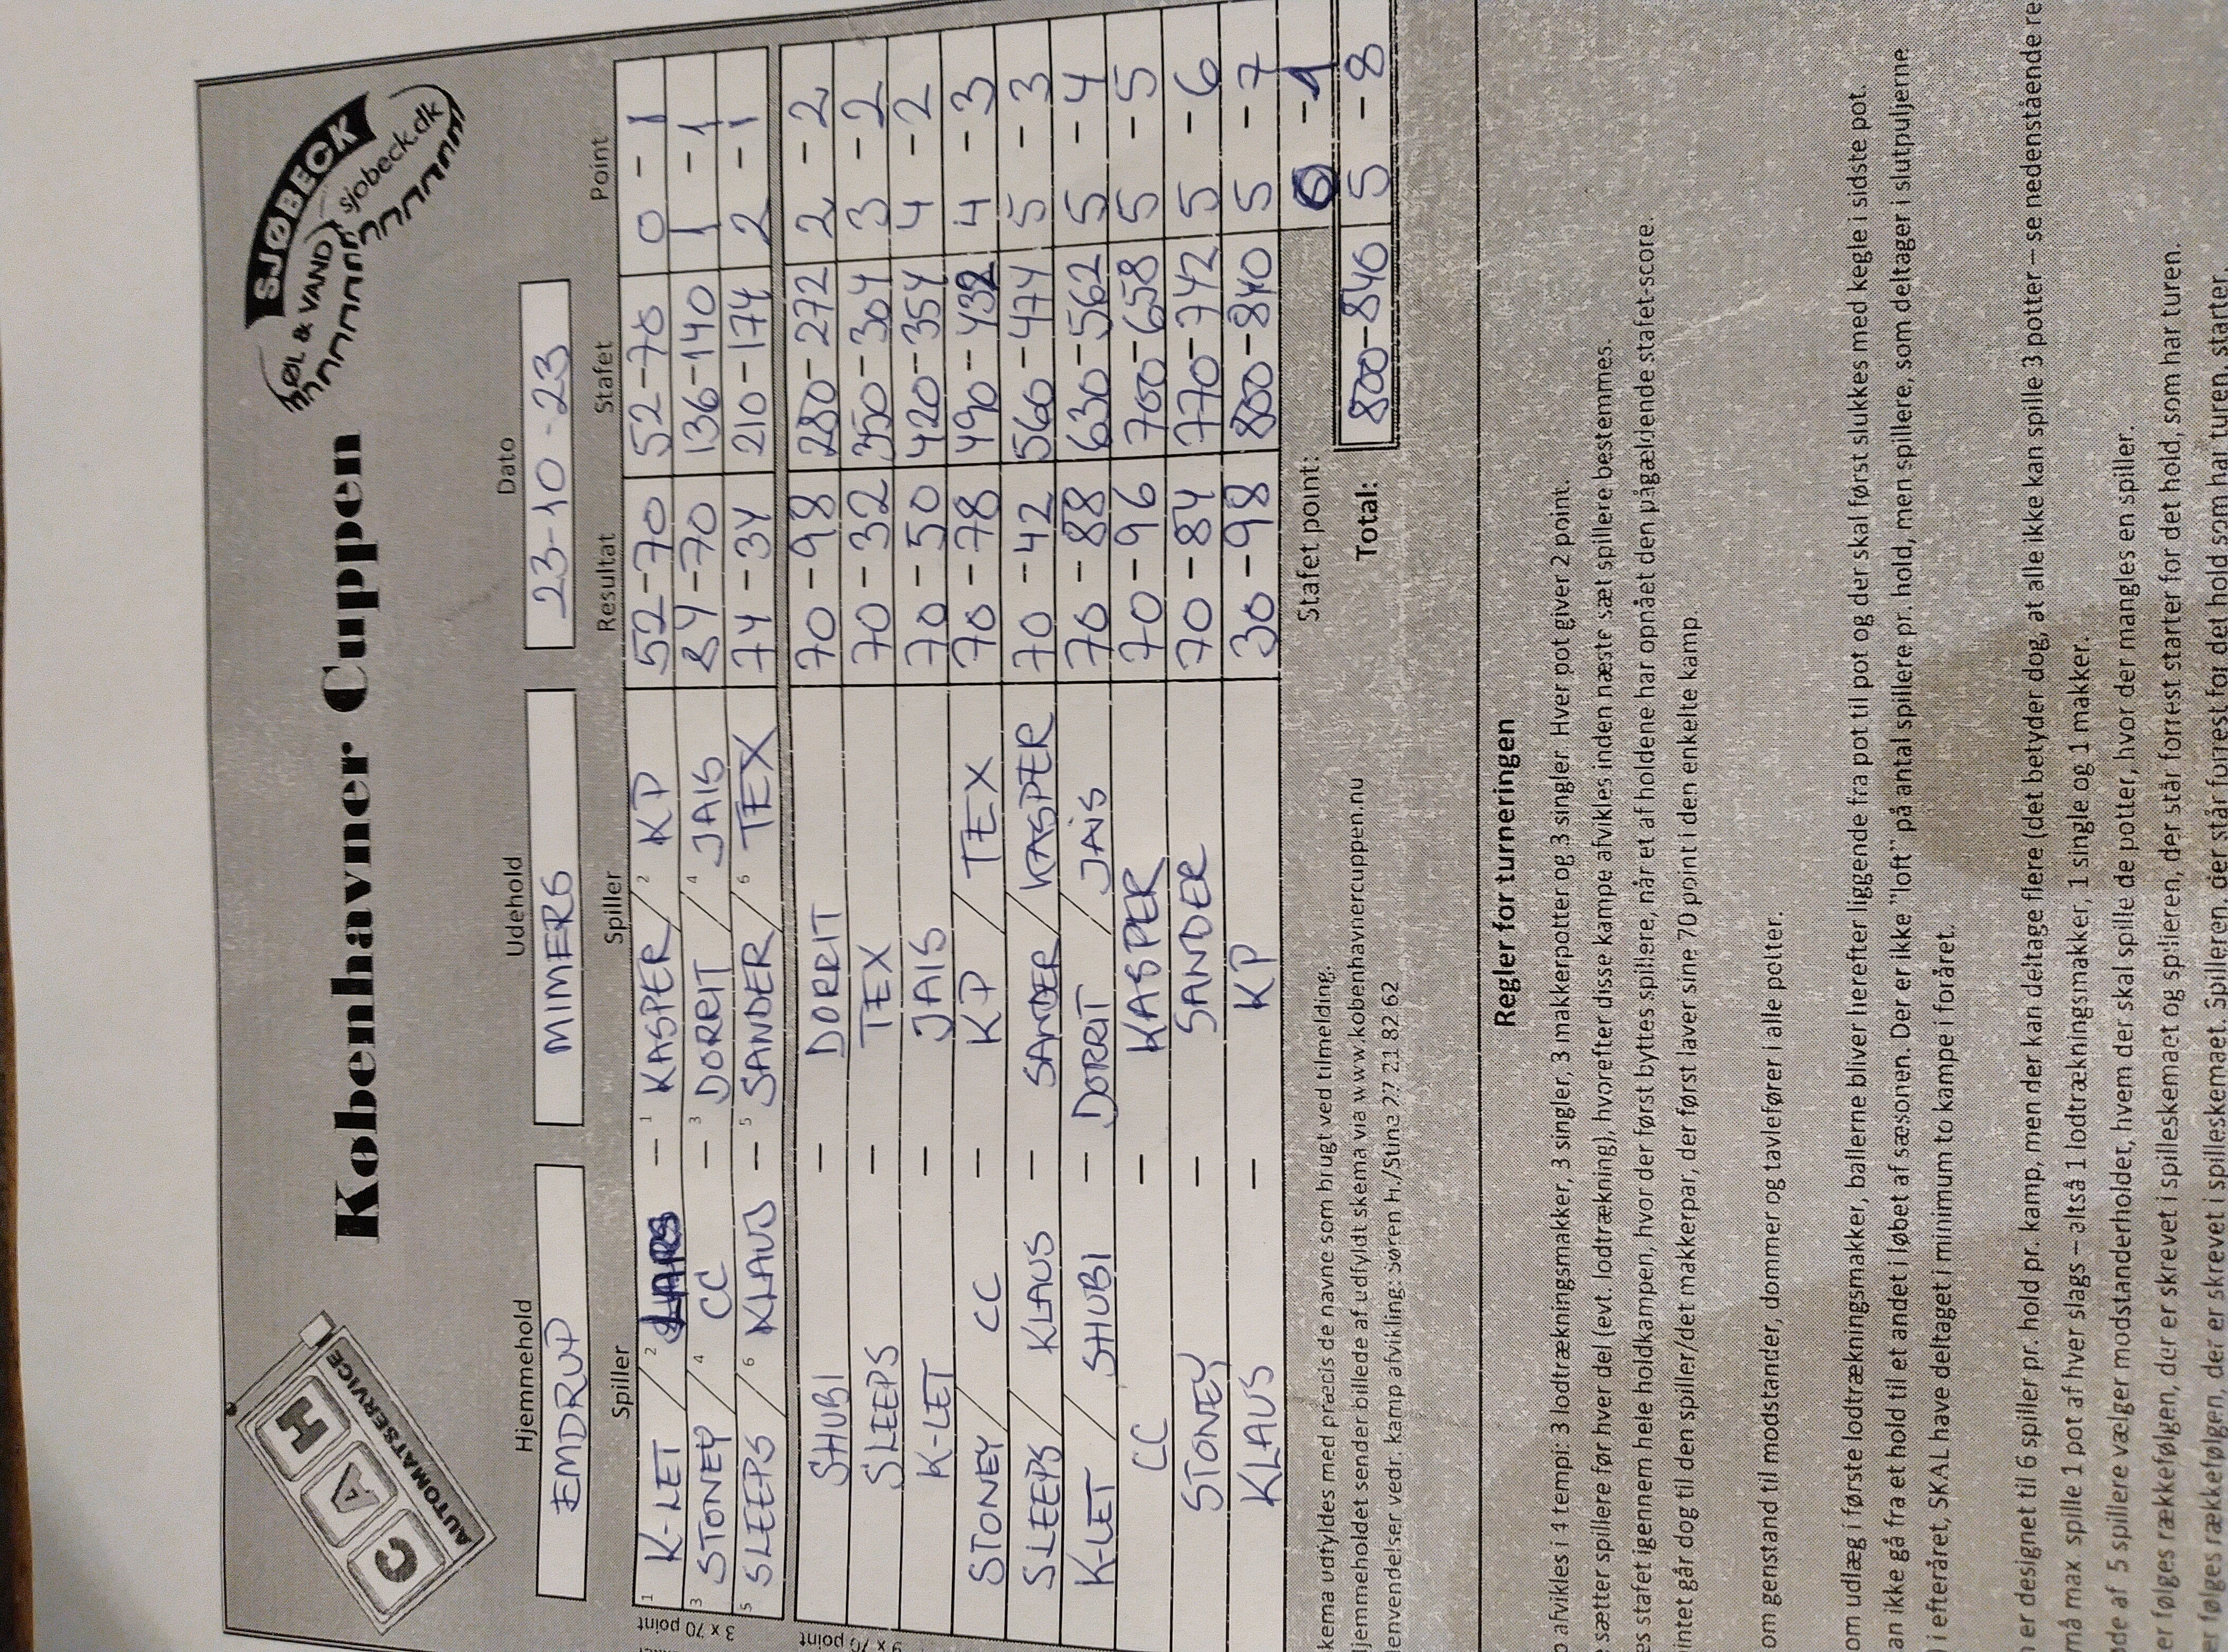 CAH
AUTOMATSERVICE
Københavner Cuppen
SJØBECK
ØL & VAND
sjobeck.dk
Hjemmehold Udehold Dato
EMDRUP MIMERS 23-10-23
Spiller Spiller Resultat Stafet Point
3 x 70 point
1 K-LET / 2 LARS - 1 KASPER / 2 KP 52-70 52-70 0-1
3 STONEY / 4 CC - 3 DORRIT / 4 JAIS 84-70 136-140 1-1
5 SLEEPS / 6 KLAUS - 5 SANDER / 6 TEX 74-34 210-174 2-1
9 x 70 point
SHUBI - DORRIT 70-98 280-272 2-2
SLEEPS - TEX 70-32 350-304 3-2
K-LET - JAIS 70-50 420-354 4-2
STONEY / CC - KP / TEX 70-78 490-432 4-3
SLEEPS / KLAUS - SANDER / KASPER 70-42 560-474 5-3
K-LET / SHUBI - DORRIT / JAIS 70-88 630-562 5-4
CC - KASPER 70-96 700-658 5-5
STONEY - SANDER 70-84 770-742 5-6
KLAUS - KP 30-98 800-840 5-7
Stafet point: 0-1
Total: 800-840 5-8
kema udfyldes med præcis de navne som brugt ved tilmelding.
jemmeholdet sender billede af udfyldt skema via www.kobenhavnercuppen.nu
envendelser vedr. kamp afvikling: Søren H./Stina 27 21 82 62
Regler for turneringen
afvikles i 4 tempi: 3 lodtrækningsmakker, 3 singler, 3 makkerpotter og 3 singler. Hver pot giver 2 point.
sætter spillere før hver del (evt. lodtrækning), hvorefter disse kampe afvikles inden næste sæt spillere bestemmes.
es stafet igennem hele holdkampen, hvor der først byttes spillere, når et af holdene har opnået den pågældende stafet-score.
intet går dog til den spiller/det makkerpar, der først laver sine 70 point i den enkelte kamp.
om genstand til modstander, dommer og tavlefører i alle potter.
om udlæg i første lodtrækningsmakker, ballerne bliver herefter liggende fra pot til pot og der skal først slukkes med kegle i sidste pot.
an ikke gå fra et hold til et andet i løbet af sæsonen. Der er ikke "loft" på antal spillere pr. hold, men spillere, som deltager i slutpuljerne
i efteråret, SKAL have deltaget i minimum to kampe i foråret.
er designet til 6 spiller pr. hold pr. kamp, men der kan deltage flere (det betyder dog, at alle ikke kan spille 3 potter – se nedenstående re
må max spille 1 pot af hver slags – altså 1 lodtrækningsmakker, 1 single og 1 makker.
de af 5 spillere vælger modstanderholdet, hvem der skal spille de potter, hvor der mangles en spiller.
er følges rækkefølgen, der er skrevet i spilleskemaet og spilleren, der står forrest starter for det hold, som har turen.
er følges rækkefølgen, der er skrevet i spilleskemaet. Spilleren, der står forrest for det hold som har turen, starter.